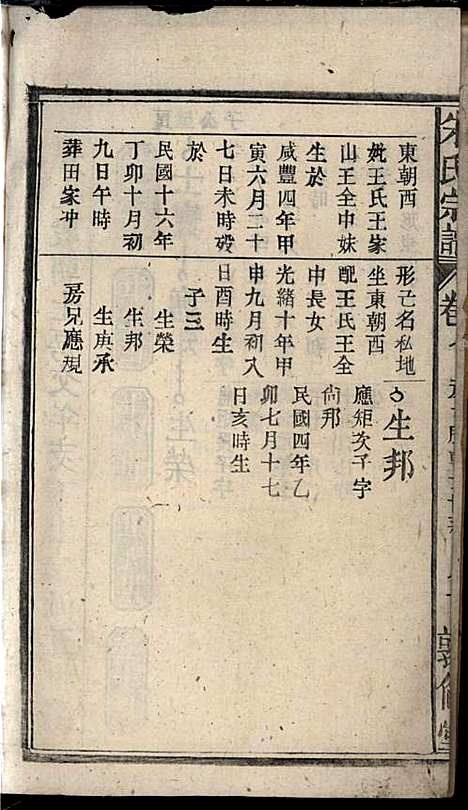 朱氏宗譜
卷
東朝西
妣王氏王家
山王全中妹
生於
咸豐四年甲
寅六月二十
七日未時歿
於
民國十六年
丁卯十月初
九日午時
葬田家冲
形亡名私地
坐東朝西
配王氏王全
中長女
光緒十年甲
申九月初八
日酉時生
子三
生榮
生邦
生庚承
房兄應現
生邦
應矩次子字
尙邦
民國四年乙
卯七月十七
日亥時生
敦倫堂